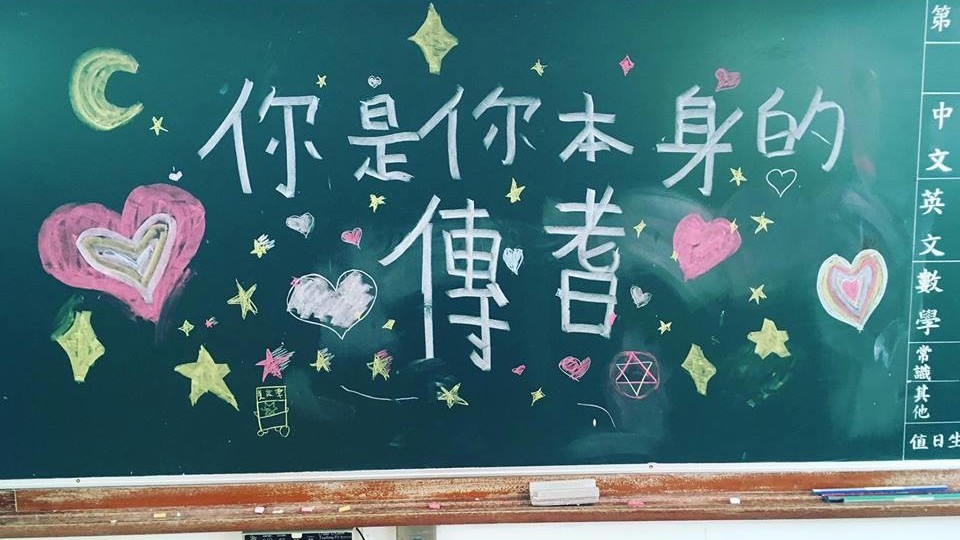 你是你本身的
傳耆
第
中文
英文
數學
常識
其他
值日生